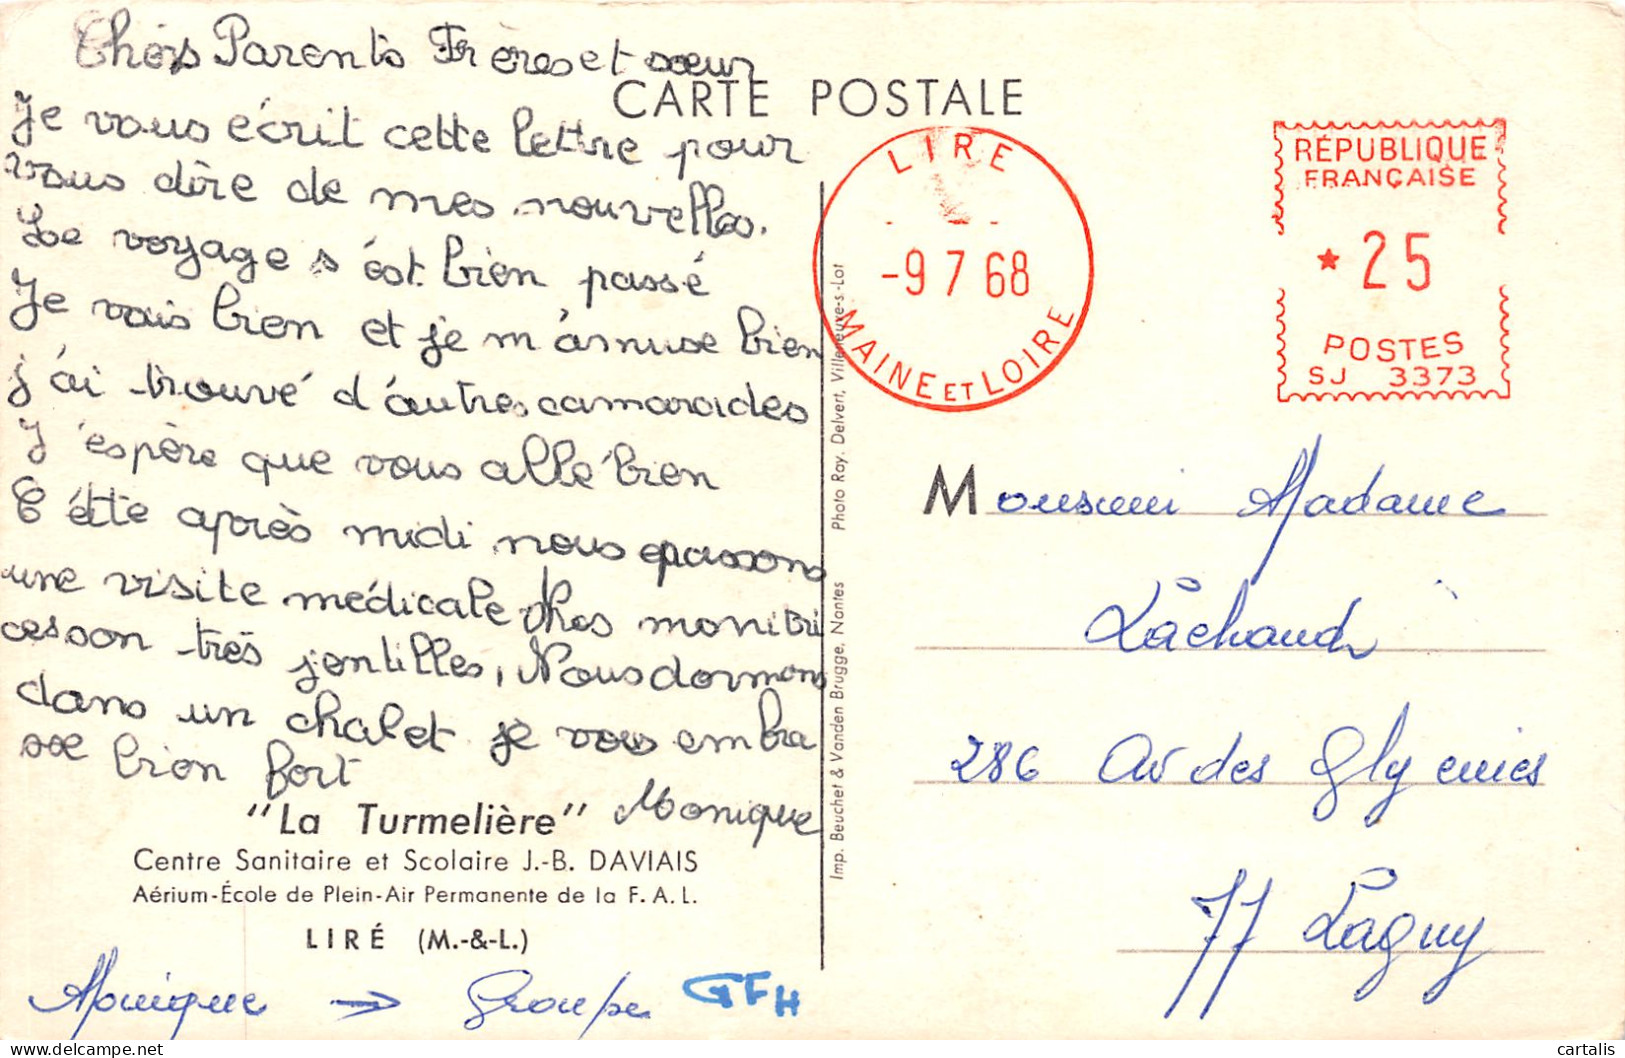 Chers Parents Frères et sœur
CARTE POSTALE
Je vous écrit cette lettre pour
vous dire de mes nouvelles.
Le voyage s'ést bien passé
Je vais bien et je m'amuse bien
j'ai trouvé d'autres camarades
J'espère que vous allé bien
Cétte après midi nous passons
une visite médicale les monitri
ces son très jentilles, Nous dormons
dans un chalet je vous embra
sse bien fort
Monique
"La Turmelière"
Centre Sanitaire et Scolaire J.-B. DAVIAIS
Aérium-École de Plein-Air Permanente de la F.A.L.
LIRÉ (M.-&-L.)
Monique → Groupe GFH
Imp. Beuchet & Vanden Brugge, Nantes Photo Ray. Delvert, Villeneuve-s-Lot
LIRE
-9 7 68
MAINE ET LOIRE
RÉPUBLIQUE
FRANÇAISE
★ 25
POSTES
SJ 3373
Monsieur Madame
Lachaud
286 Av des Glycines
77 Lagny
cartalis